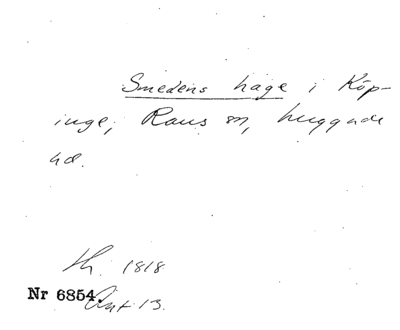 Smedens hage i Köp-
inge, Raus sn, huggade
ud.
th. 1818
Nr 6854.
Aut 13.